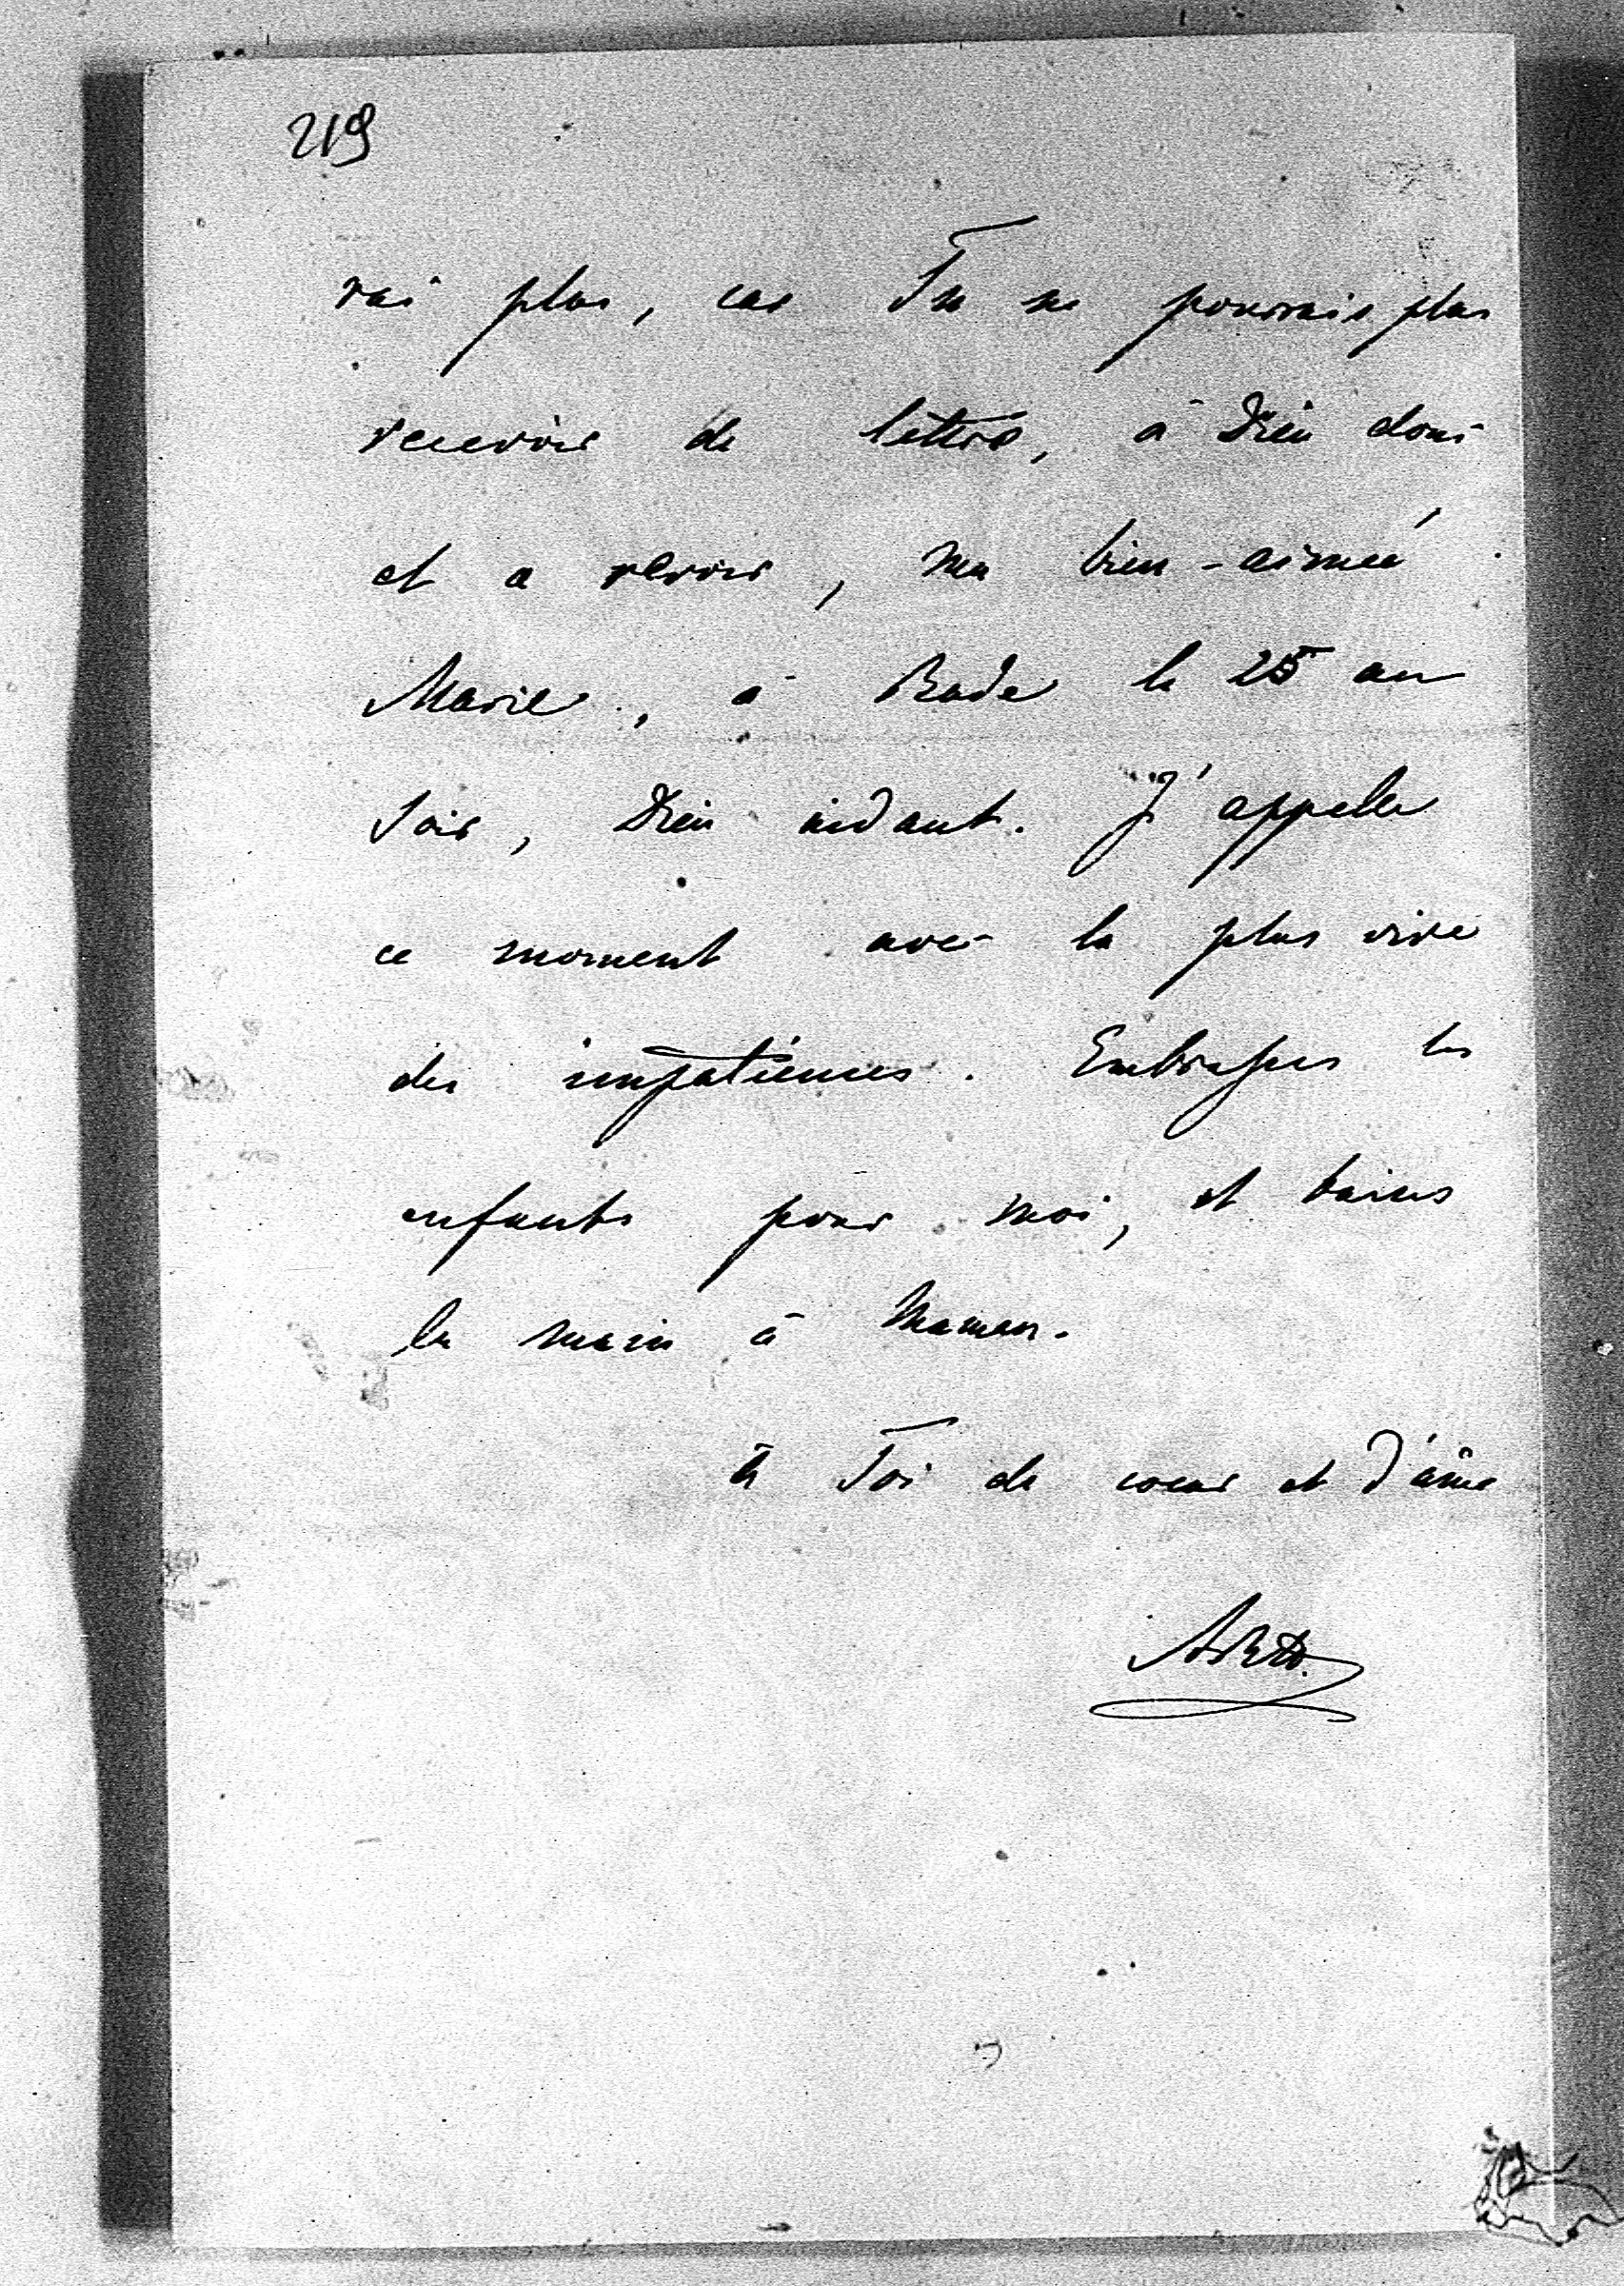 219
rai plus, car Tu ne pourrais plus
recevoir de lettres, à Dieu donc
et a revoir, ma bien-aimée
Marie, à Bade le 25 au
soir, Dieu aidant. J'appelle
ce moment avec la plus vive
des impatiences. Embrasses les
enfants pour moi, et baises
la main à Maman.
à Toi de coeur et d'âme